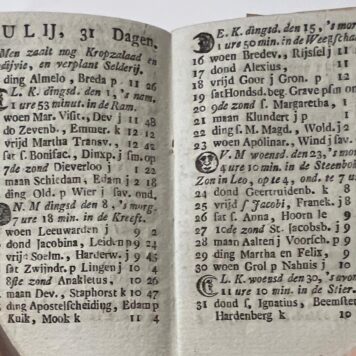 JULIJ, 31 Dagen.
Men zaait nog Kropzalaad en
dijvie, en verplant Selderij.
ding Almelo, Breda p 11 26
L. K. dingsd. den 1, 's nam.
ure 53 minut. in de Ram.
woen Mar. Visit., Dev j 11 48
do Zevenb., Emmer. k 12
vrijd Martha Transv.
sat s. Bonifac., Dinxp. j sm.op
7de zond Dieverloo j
maan Schiedam, Edam p
ding Old. p Wier j sav. ond.
N. M dingsd den 8, 's morg.
7 ure 18 min. in de Kreeft.
woen Leeuwarden j 9
dond Jacobina, Leiden p 9 24
vrijd Soelm., Harderw. j 9 45
sat Zwijndr. p Lingen j 10 4
8ste zond Anakletus, 10 26
maan Dev., Staphorst k 10 47
ding Apostelscheiding, Edam p
Kuik, Mook k 11 4
E. K. dingsd. den 15, 's mor
1 ure 50 min. in de Weegschaal
16 woen Bredev., Rijssel j 11
17 dond Alexius, 11
18 vrijd Goor j Gron. p 12
19 sat Hondsd. beg. Grave psm.op
20 9de zond s. Margaretha, 1
21 maan Klundert j p 1
22 ding s. M. Magd., Wold. j 2
23 woen Apolinar., Wind j sav.
V. M woensd. den 23, 's mor
4 ure 10 min. in de Steenbok
Zon in Leo, op te 4, ond. te 7 ure
24 dond Geertruidenb. k 8
25 vrijd s Jacobi, Franek. j 8
26 sat s. Anna, Hoorn le 9
27 10de zond St. Jacobsb. j 9
28 maan Aalten j Voorsch. p 9
29 ding Martha en Felix, 9
30 woen Grol p Nahuis j 10
L. K. woensd. den 30, 's avonds
11 ure 10 min. in de Stier.
31 dond s. Ignatius, Beemster
Hardenberg k 10